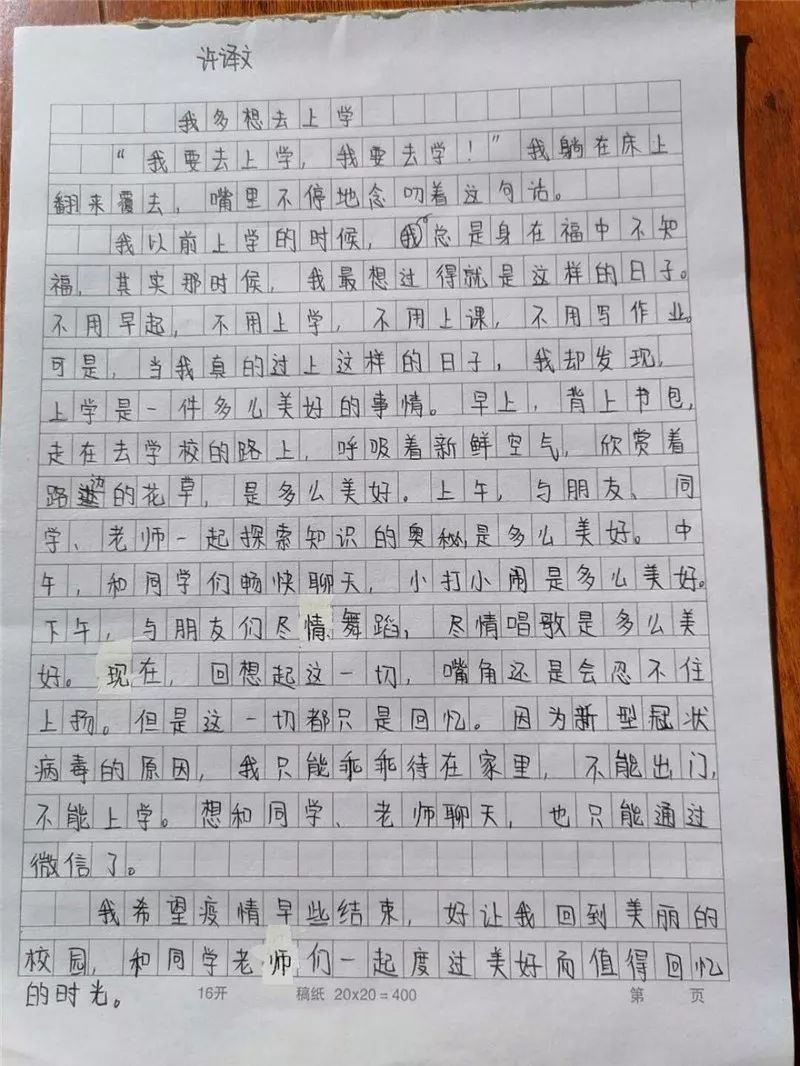 许译文
我多想去上学
“我要去上学，我要去学！”我躺在床上
翻来覆去，嘴里不停地念叨着这句话。
我以前上学的时候，总是身在福中不知
福，其实那时候，我最想过得就是这样的日子。
不用早起，不用上学，不用上课，不用写作业。
可是，当我真的过上这样的日子，我却发现，
上学是一件多么美好的事情。早上，背上书包，
走在去学校的路上，呼吸着新鲜空气，欣赏着
路边的花草，是多么美好。上午，与朋友、同
学、老师一起探索知识的奥秘，是多么美好。中
午，和同学们畅快聊天，小打小闹是多么美好。
下午，与朋友们尽情舞蹈，尽情唱歌是多么美
好。现在，回想起这一切，嘴角还是会忍不住
上扬。但是这一切都只是回忆。因为新型冠状
病毒的原因，我只能乖乖待在家里，不能出门，
不能上学。想和同学、老师聊天，也只能通过
微信了。
我希望疫情早些结束，好让我回到美丽的
校园，和同学老师们一起度过美好而值得回忆
的时光。
16开 稿纸 20x20=400 第 页